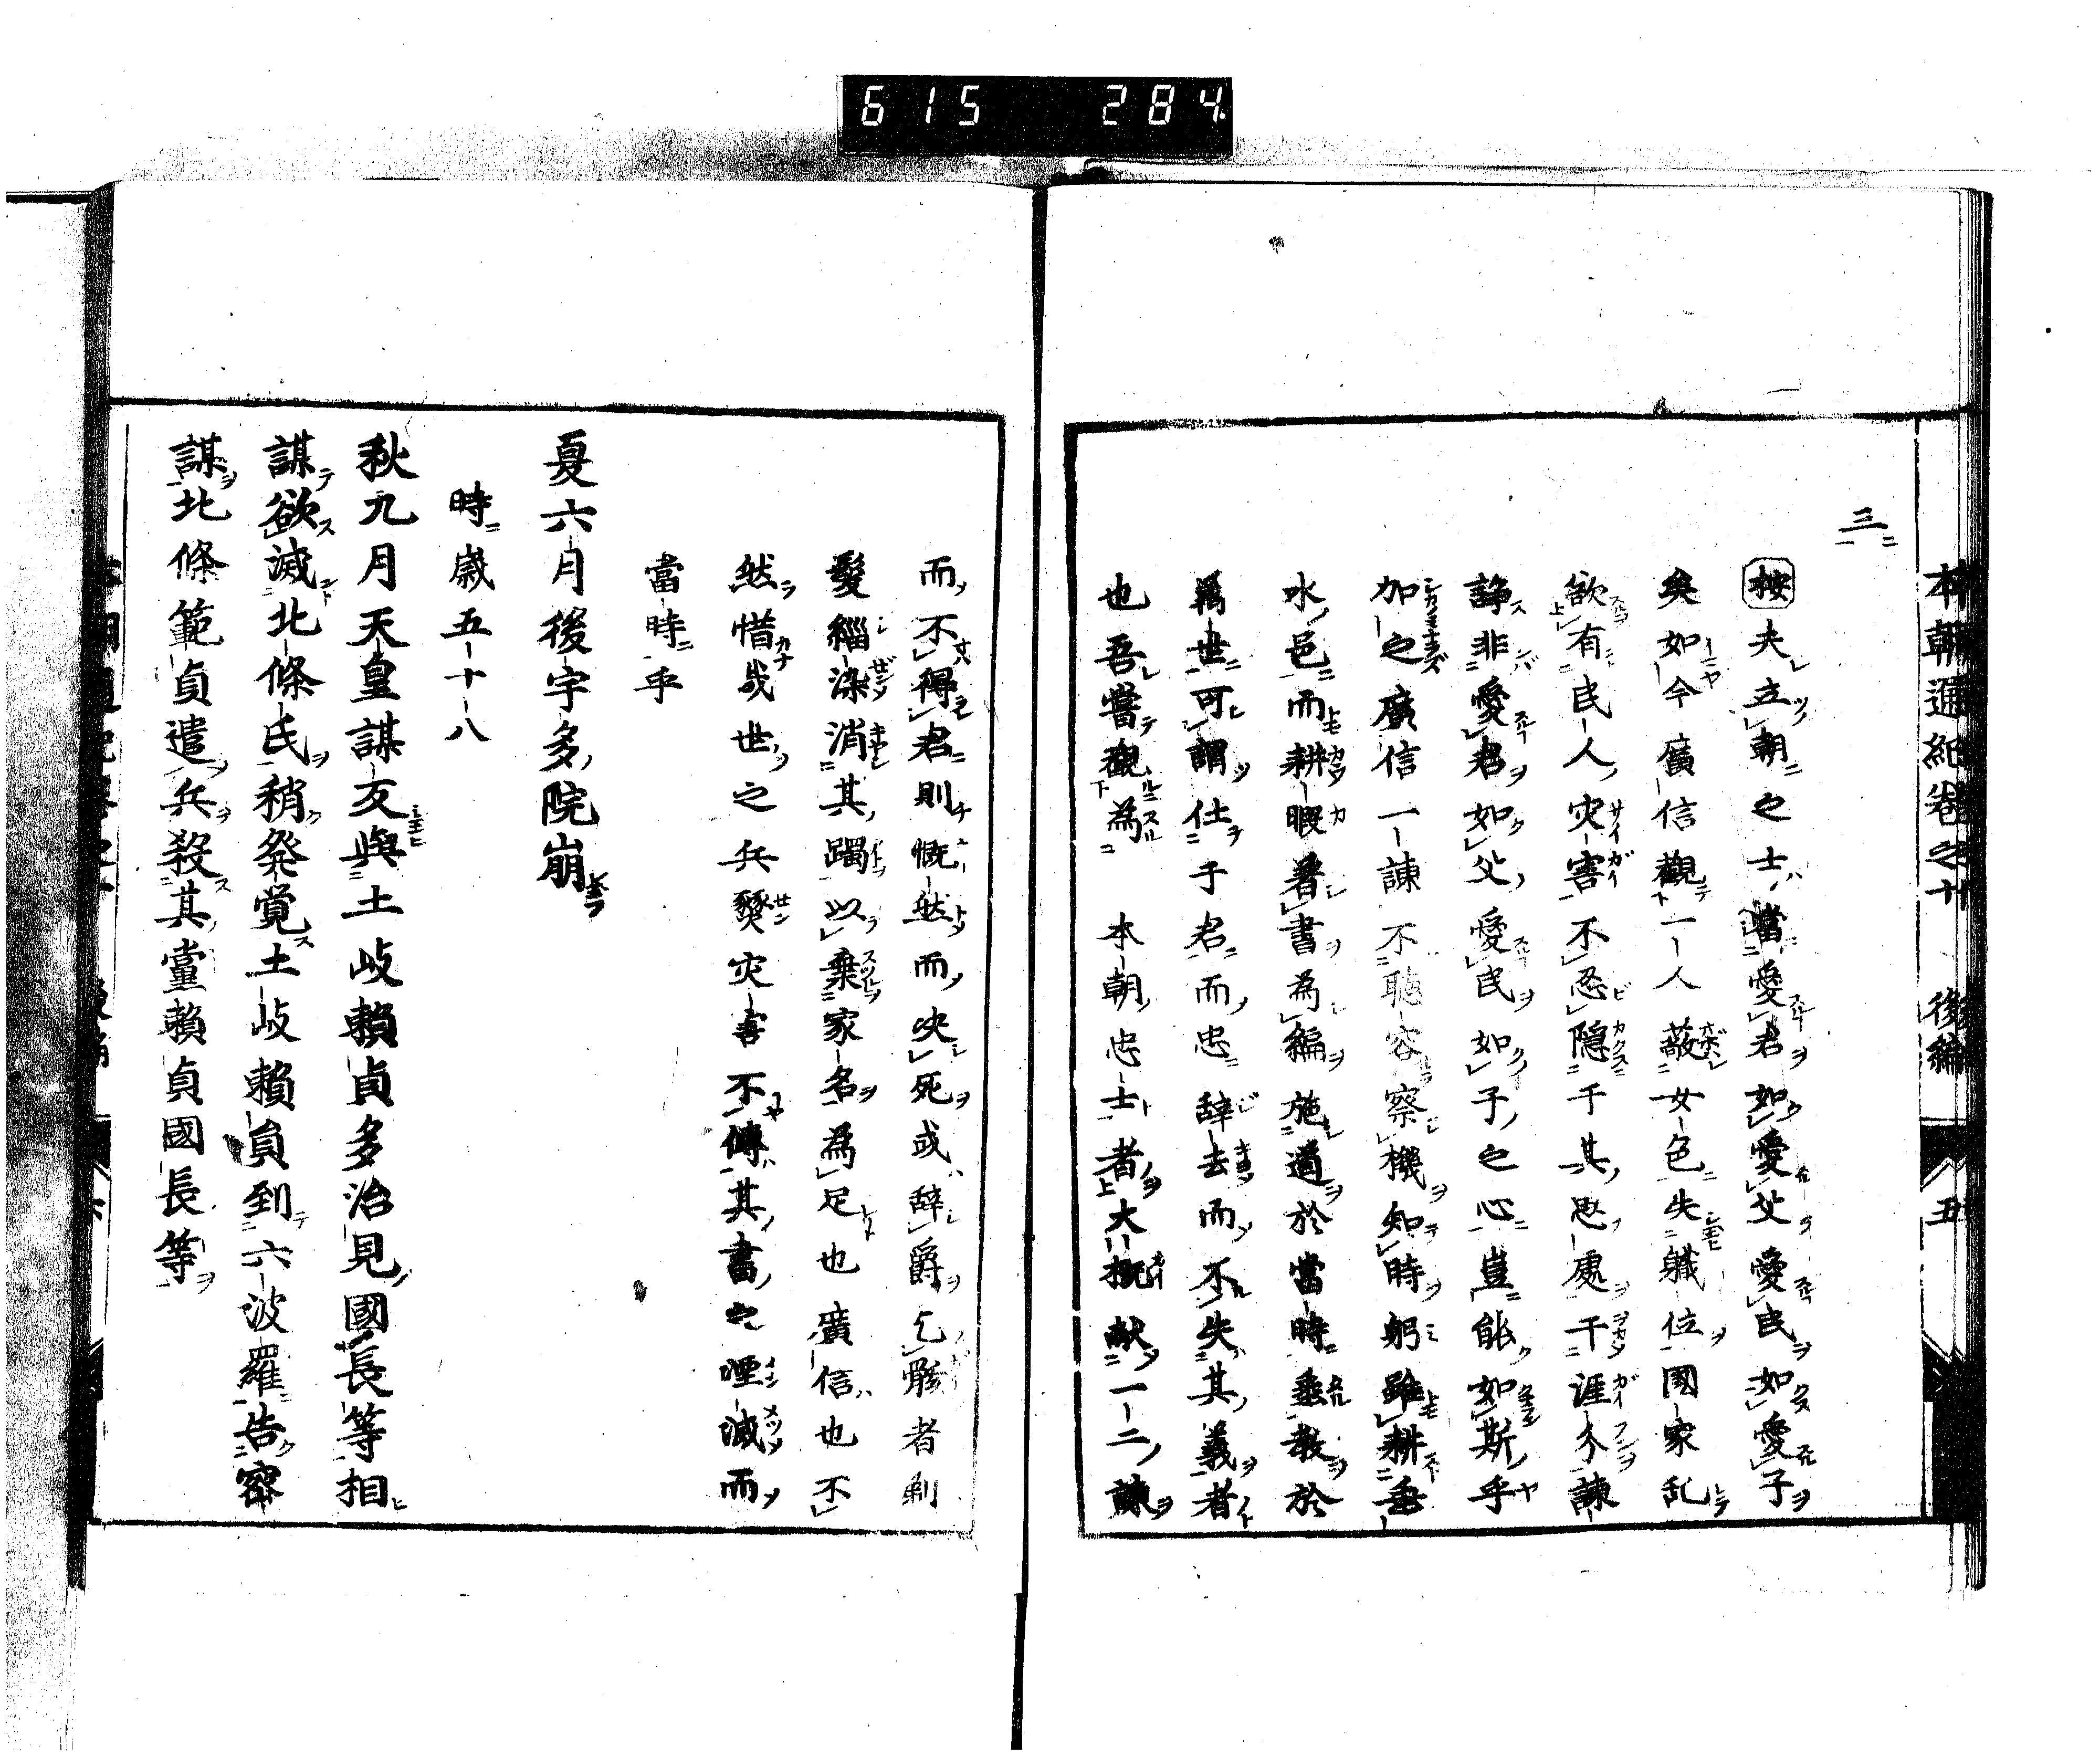 615 284
本朝通紀卷之十 後編 五
三
按夫立朝之士當愛君如愛父愛民如愛子
矣如今廣信觀一人蔽女色失職位國家乱
欲有民人灾害不忍隠千其思處千涯分諫
諍非愛君如父愛民如子之心豈能如斯乎
加之廣信一諫不聴容察機知時躬雖耕垂
水邑而耕暇著書為編施道於當時垂教於
萬世可謂仕于君而忠辞去而不失其義者
也吾嘗觀為 本朝忠士者大概献一二諫
而不得君則慨然而决死或辞爵乞骸者剃
髮緇染消其躅以棄家名為足也廣信也不
然惜哉世之兵燹灾害不傳其書之湮滅而
當時乎
夏六月後宇多院崩
時歲五十八
秋九月天皇謀反與土岐賴貞多治見國長等相
謀欲滅北條氏稍発覚土岐賴貟到六波羅告密
謀北條範貞遣兵殺其黨賴貞國長等